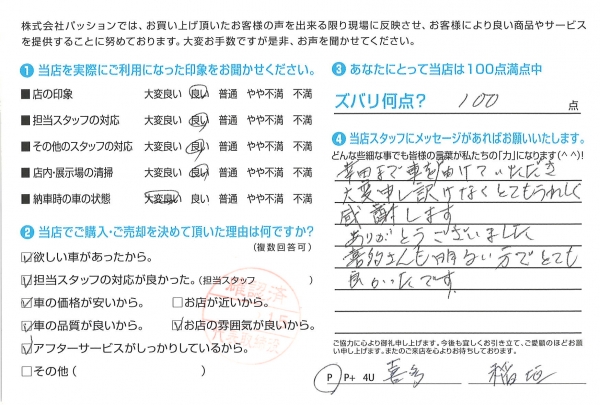 株式会社パッションでは、お買い上げ頂いたお客様の声を出来る限り現場に反映させ、お客様により良い商品やサービス
を提供することに努めております。大変お手数ですが是非、お声を聞かせてください。
❶ 当店を実際にご利用になった印象をお聞かせください。
■ 店の印象 大変良い 良い 普通 やや不満 不満
■ 担当スタッフの対応 大変良い 良い 普通 やや不満 不満
■ その他のスタッフの対応 大変良い 良い 普通 やや不満 不満
■ 店内・展示場の清掃 大変良い 良い 普通 やや不満 不満
■ 納車時の車の状態 大変良い 良い 普通 やや不満 不満
❷ 当店でご購入・ご売却を決めて頂いた理由は何ですか?
(複数回答可)
☑欲しい車があったから。
☑担当スタッフの対応が良かった。(担当スタッフ )
☑車の価格が安いから。 □お店が近いから。
☑車の品質が良いから。 ☑お店の雰囲気が良いから。
☑アフターサービスがしっかりしているから。
□その他( )
確認済
❸ あなたにとって当店は100点満点中
ズバリ何点? 100 点
❹ 当店スタッフにメッセージがあればお願いいたします。
どんな些細な事でも皆様の言葉が私たちの「力」になります(^^)!
幸田まで車を届けていただき
大変申し訳けなくとてもうれしく
感謝します
ありがとうございました
喜多さんも明るい方でとても
良かったです。
ご協力に心より御礼申し上げます。今後も宜しくお引き立て、ご愛顧のほどお願
い申し上げます。またのご来店を心よりお待ちしております。
P P+ 4U 喜多 稲垣